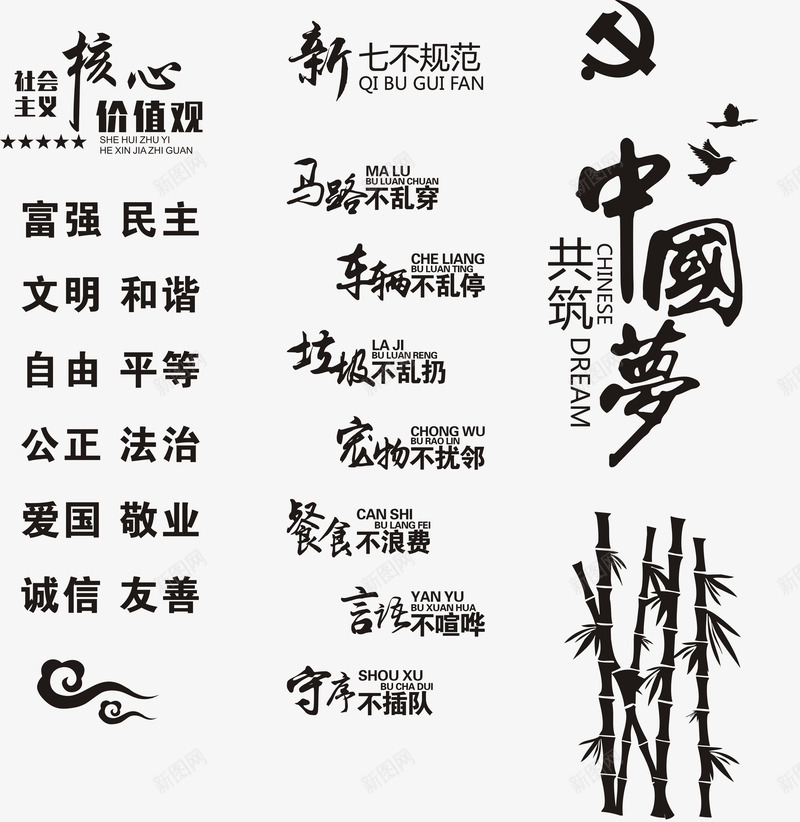 社会
主义
核心
价值观
SHE HUI ZHU YI
HE XIN JIA ZHI GUAN
富强 民主
文明 和谐
自由 平等
公正 法治
爱国 敬业
诚信 友善
新 七不规范
QI BU GUI FAN
马路 MA LU
BU LUAN CHUAN
不乱穿
车辆 CHE LIANG
BU LUAN TING
不乱停
垃圾 LA JI
BU LUAN RENG
不乱扔
宠物 CHONG WU
BU RAO LIN
不扰邻
餐食 CAN SHI
BU LANG FEI
不浪费
言语 YAN YU
BU XUAN HUA
不喧哗
守序 SHOU XU
BU CHA DUI
不插队
共筑
CHINESE DREAM
中國夢
新图网